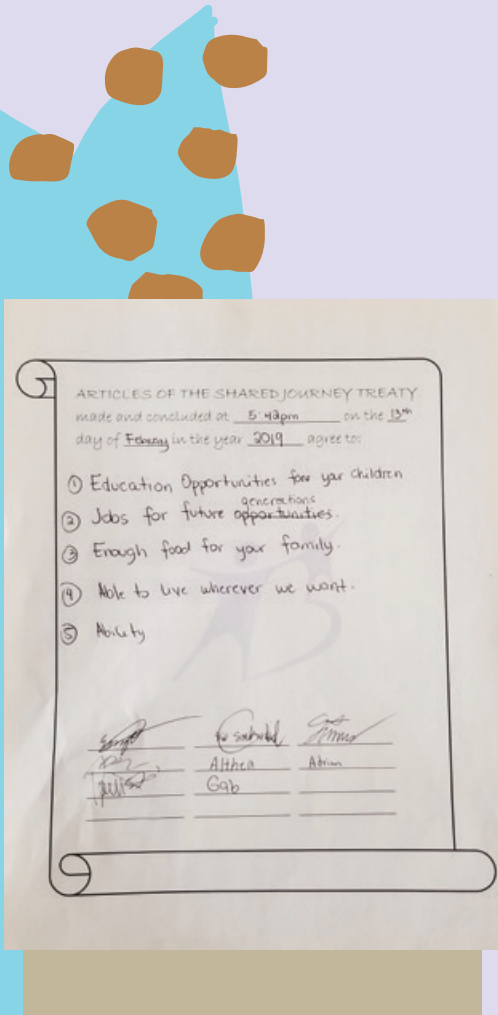 ARTICLES OF THE SHARED JOURNEY TREATY
made and concluded at 5:42pm on the 13th
day of in the year 2019 agree to:
① Education Opportunities your children
generations
② Jobs for future opportunities.
③ Enough food for your family.
④ Able to live wherever we want.
⑤ Ability
Althea Adrian
Gab